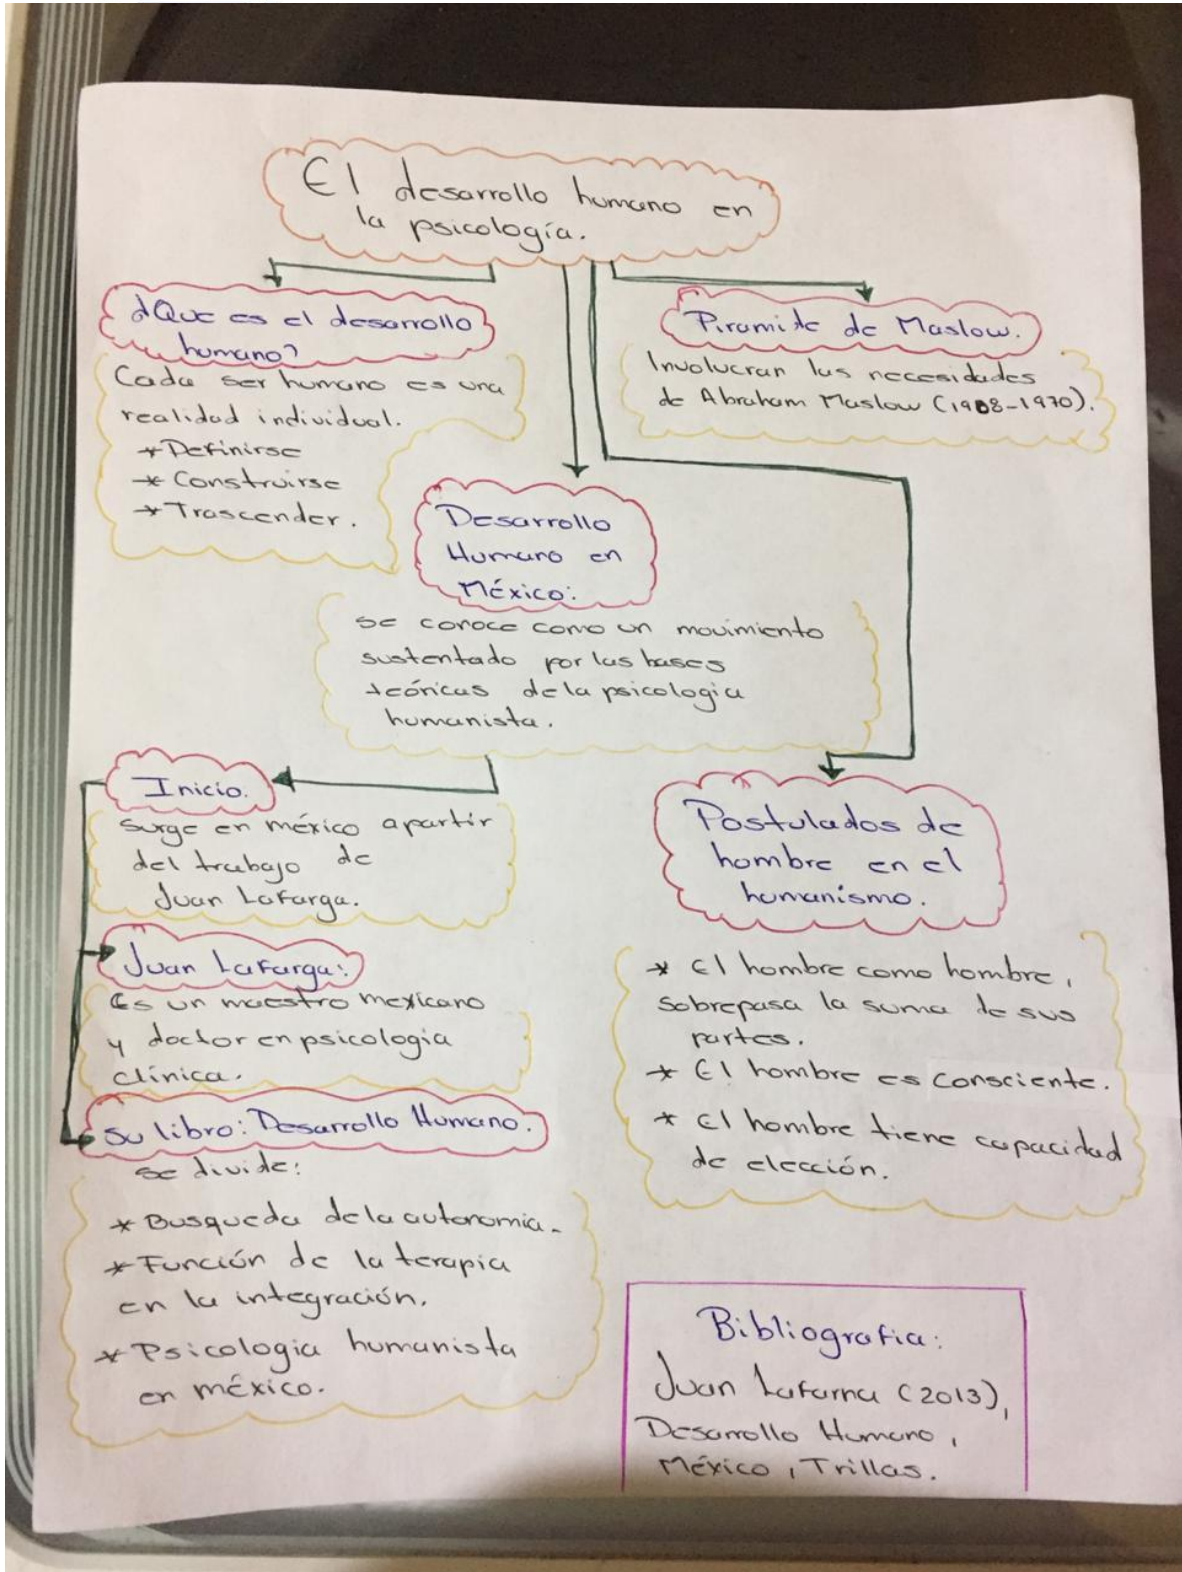 El desarrollo humano en
la psicología.
¿Que es el desarrollo
humano?
Cada ser humano es una
realidad individual.
* Definirse
* Construirse
* Trascender.
Piramide de Maslow.
Involucran las necesidades
de Abraham Maslow (1908-1970).
Desarrollo
Humano en
México:
se conoce como un movimiento
sustentado por las bases
teóricas de la psicologia
humanista.
Inicio.
surge en méxico apartir
del trabajo de
Juan Lafarga.
Juan Lafarga:
Es un maestro mexicano
y doctor en psicologia
clínica.
su libro: Desarrollo Humano.
se divide:
* Busqueda de la autonomia.
* Función de la terapia
en la integración.
* Psicologia humanista
en méxico.
Postulados de
hombre en el
humanismo.
* El hombre como hombre,
sobrepasa la suma de sus
partes.
* El hombre es consciente.
* El hombre tiene capacidad
de elección.
Bibliografia:
Juan Lafarna (2013),
Desarrollo Humano,
México, Trillas.